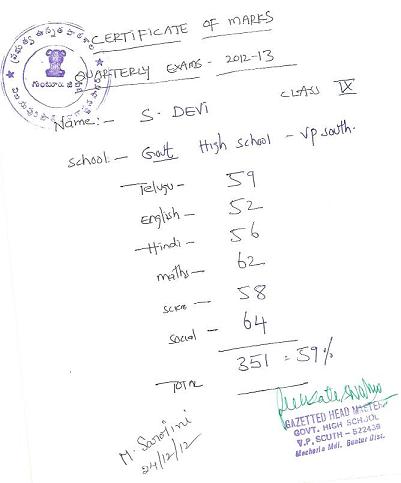 CERTIFICATE OF MARKS
QUARTERLY EXAMS - 2012-13
CLASS IX
గుంటూరు జి
Name:- S. DEVI
School:- Govt High School - VP south.
Telugu- 59
English- 52
Hindi- 56
maths- 62
58
social- 64
351 = 59%
TOTAL
M. Sarojini
24/12/12
GAZETTED HEAD MASTER
GOVT. HIGH SCHOOL
V.P. SOUTH - 522438
Macherla Mdl. Guntur Dist.